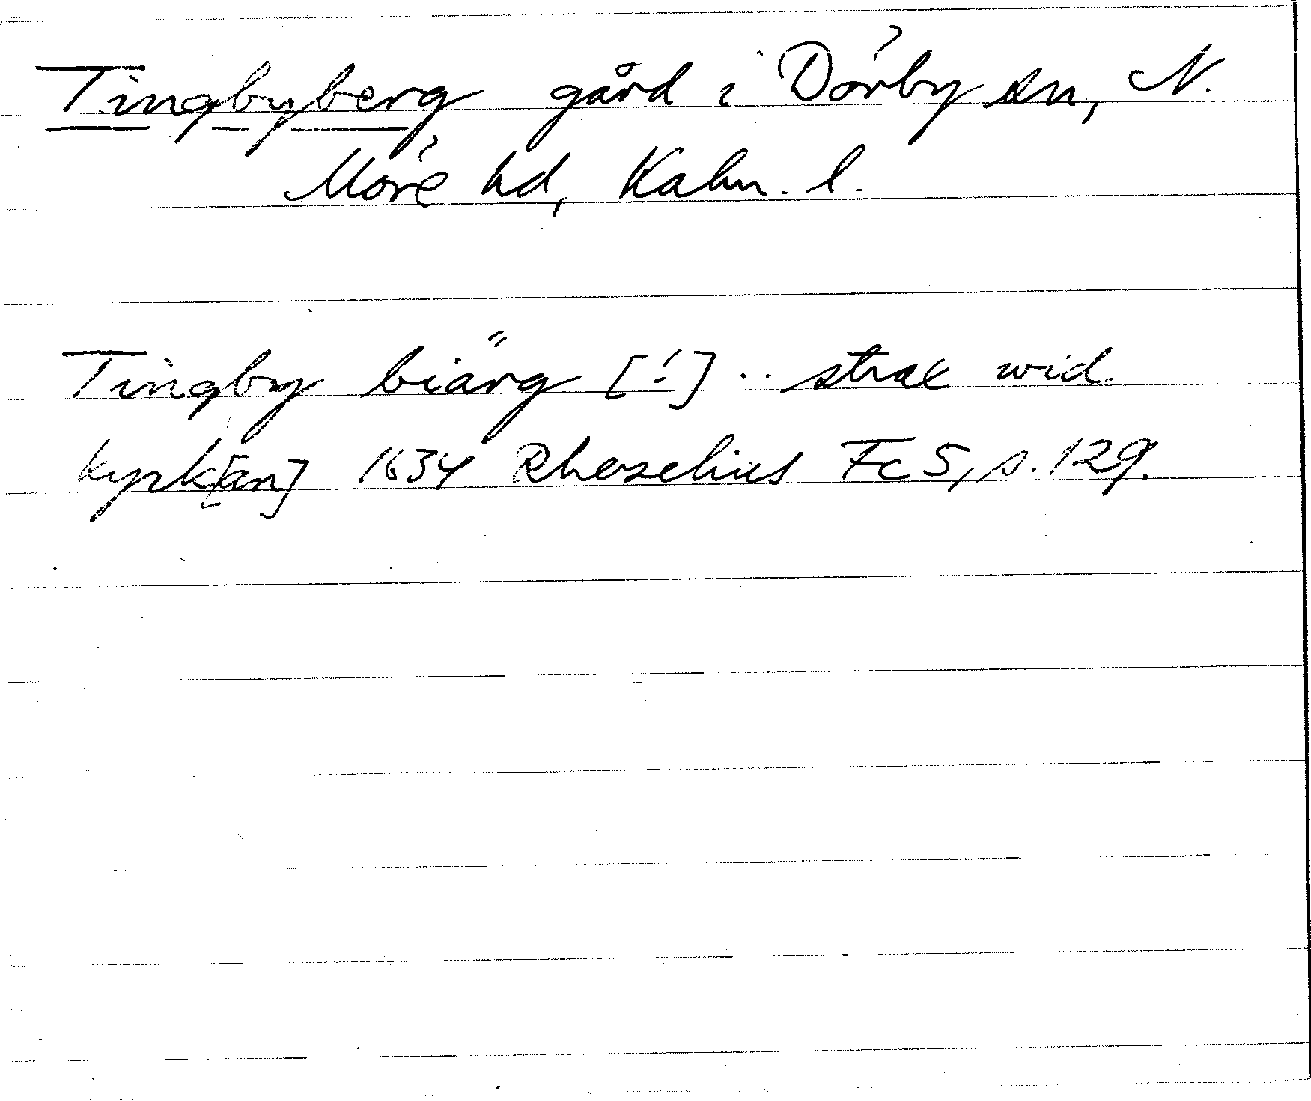 Tingbyberg gård i Dörby sn, N.
Möre hd, Kalm. l.
Tingby biärg [!] .. strax wid
kyrk[an] 1634 Rhezelius Fc5, s. 129.